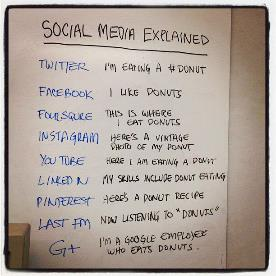 SOCIAL MEDIA EXPLAINED
TWITTER I'M EATING A #DONUT
FACEBOOK I LIKE DONUTS
FOURSQURE THIS IS WHERE
I EAT DONUTS
INSTAGRAM HERE'S A VINTAGE
PHOTO OF MY DONUT
YOU TUBE HERE I AM EATING A DONUT
LINKED IN MY SKILLS INCLUDE DONUT EATING
PINTEREST HERE'S A DONUT RECIPE
LAST FM NOW LISTENING TO "DONUTS"
G+ I'M A GOOGLE EMPLOYEE
WHO EATS DONUTS.